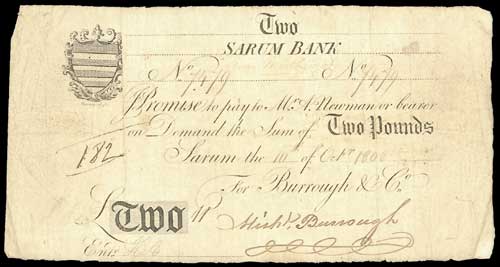 Two
SARUM BANK
No. 7479 No. 7479
I Promise to pay to Mr. A. Newman or bearer
on Demand the Sum of Two Pounds
182
Sarum the 10 of Octr. 1800
For Burrough & Co.
£ Two
Michl. Burrough
Entd.